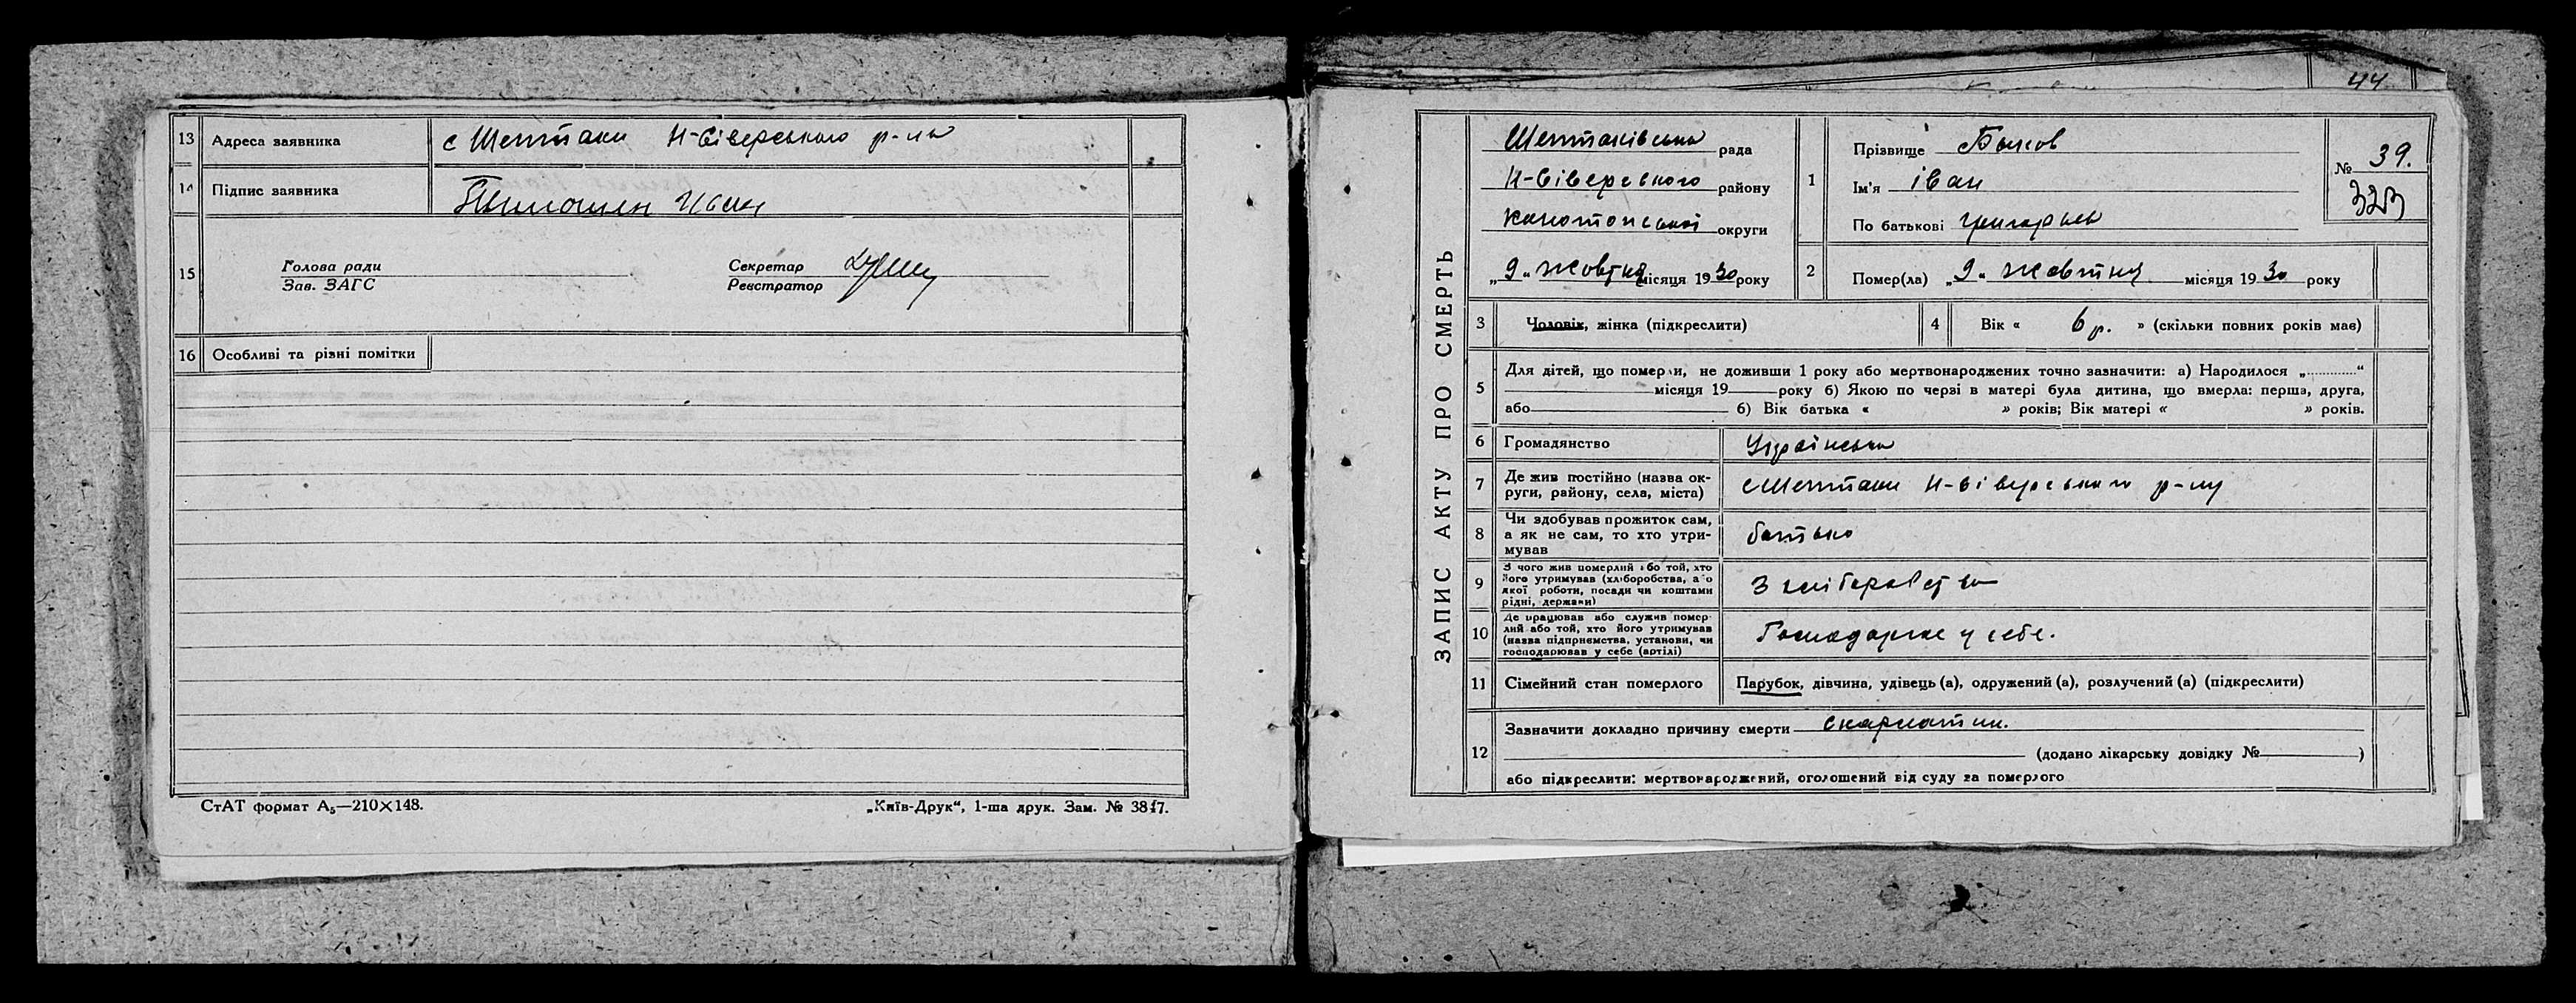 13 Адреса заявника с Шептаки Н-Сіверського р-ну
14 Підпис заявника Иван
15 Голова ради
Зав. ЗАГС
Секретар
Реєстратор
16 Особливі та різні помітки
СтАТ формат А₅—210×148.
„Київ-Друк“, 1-ша друк. Зам. № 3817.
44
ЗАПИС АКТУ ПРО СМЕРТЬ
Шептаківська рада
Н-Сіверського району
Конотопської округи
„9“ жовтня місяця 1930 року
1 Прізвище Биков
Ім'я іван
По батькові григорьев
№ 39.
323
2 Помер(ла) „9“ жовтня місяця 1930 року
3 Чоловік, жінка (підкреслити)
4 Вік « 6 р. » (скільки повних років має)
5 Для дітей, що померли, не доживши 1 року або мертвонароджених точно зазначити: а) Народилося „............“
місяця 19 року б) Якою по черзі в матері була дитина, що вмерла: перша, друга,
або б) Вік батька « » років; Вік матері « » років.
6 Громадянство Українська
7 Де жив постійно (назва ок-
руги, району, села, міста) с Шептаки Н-Сіверського р-ну
8 Чи здобував прожиток сам,
а як не сам, то хто утри-
мував батько
9 З чого жив померлий або той, хто
його утримував (хліборобства, або
якої роботи, посади чи коштами
рідні, держави) З хліборобства
10 Де працював або служив помер-
лий або той, хто його утримував
(назва підприємства, установи, чи
господарював у себе (артілі) Господарює у себе.
11 Сімейний стан померлого Парубок, дівчина, удівець (а), одружений (а), розлучений (а) (підкреслити)
12 Зазначити докладно причину смерти скарлатин.
(додано лікарську довідку № )
або підкреслити: мертвонароджений, оголошений від суду за померлого